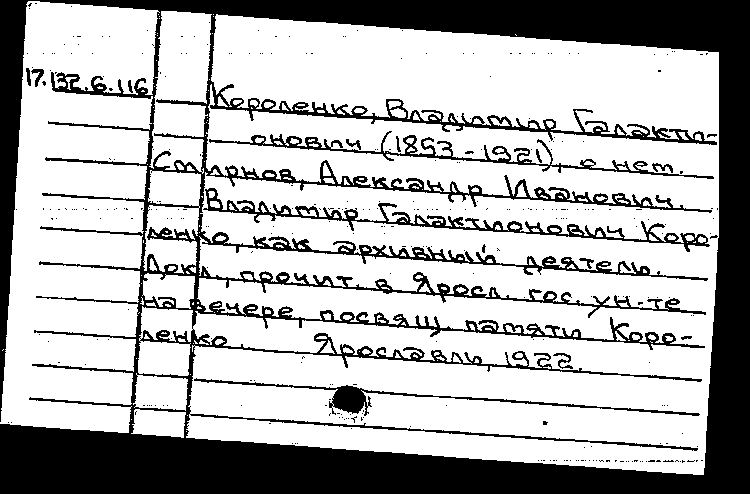 17.132.6.116
Короленко, Владимир Галакти-
онович (1853-1921), о нем.
Смирнов, Александр Иванович.
Владимир Галактионович Коро-
ленко, как архивный деятель.
Докл., прочит. в Яросл. гос. ун-те
на вечере, посвящ. памяти Коро-
ленко. Ярославль, 1922.